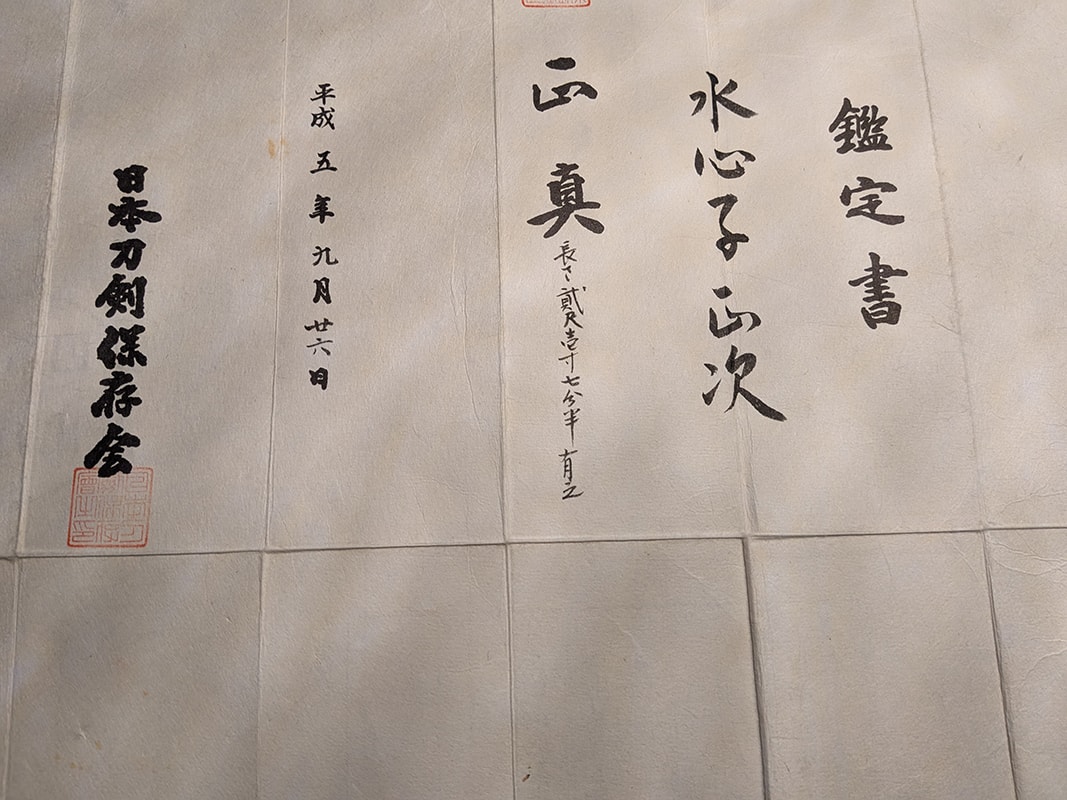 鑑定書
水心子正次
正真
長さ貳尺壱寸七分半有之
平成五年九月廿六日
日本刀剣保存会